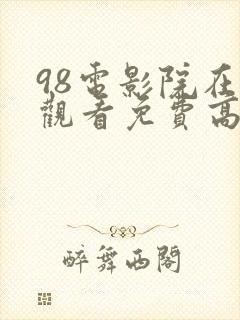 98電影院在
觀看免費高
醉舞西閣